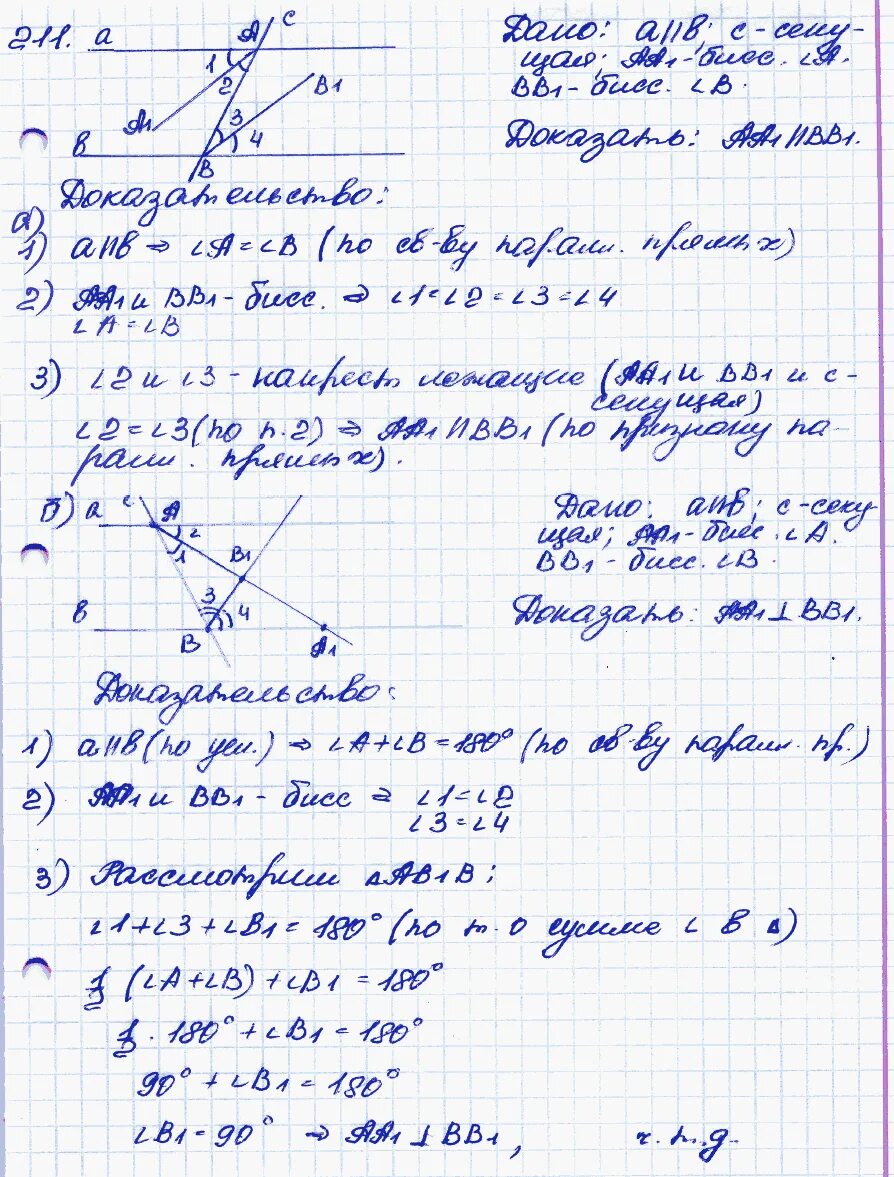 211. a A C
1 2 B1
A1 3 4
в B
Дано: a||в; c - секу-
щая; AA1 - бисс. ∠A.
BB1 - бисс. ∠B.
Доказать: AA1||BB1.
Доказательство:
а)
1) a||в ⇒ ∠A=∠B (по св-ву паралл. прямых)
2) AA1 и BB1 - бисс. ⇒ ∠1=∠2=∠3=∠4
∠A=∠B
3) ∠2 и ∠3 - накрест лежащие (AA1 и BB1 и c -
секущая)
∠2=∠3 (по п.2) ⇒ AA1||BB1 (по признаку па-
ралл. прямых).
б) a c A
2 1 B1
3 4
в B A1
Дано: a||в; c - секу
щая; AA1 - бисс. ∠A.
BB1 - бисс. ∠B.
Доказать: AA1⊥BB1.
Доказательство:
1) a||в (по усл.) ⇒ ∠A+∠B=180° (по св-ву паралл. пр.)
2) AA1 и BB1 - бисс ⇒ ∠1=∠2
∠3=∠4
3) Рассмотрим △AB1B:
∠1+∠3+∠B1=180° (по т. о сумме ∠ в △)
(∠A+∠B)+∠B1=180°
· 180°+∠B1=180°
90°+∠B1=180°
∠B1=90° ⇒ AA1⊥BB1, ч.т.д.